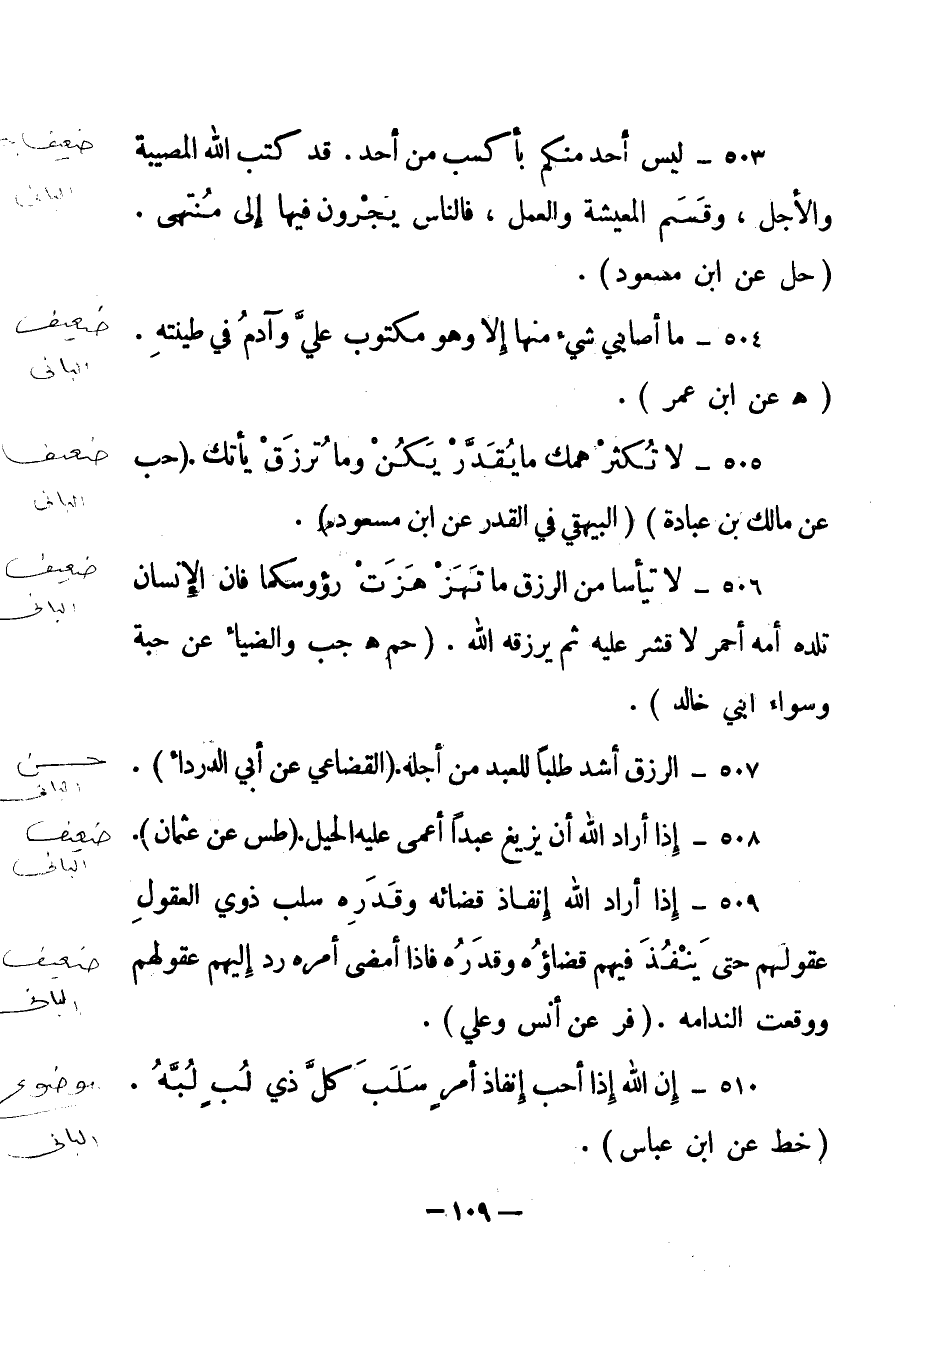 ٥٠٣ ـ ليس أحد منكم بأكسب من أحد . قد كتب الله المصيبة
ضعيف
والأجل ، وقَسَم المعيشة والعمل ، فالناس يَجْرون فيها إلى مُنتهى .
الباني
( حل عن ابن مسعود ) .
٥٠٤ ـ ما أصابني شيء منها إلا وهو مكتوب عليَّ وآدمُ في طينتهِ .
ضعيف
الباني
( ه عن ابن عمر ) .
٥٠٥ ـ لا تُكثرْ همك ما يُقَدَّرْ يَكُنْ وما تُرزَقْ يأتك .(حب
ضعيف
عن مالك بن عبادة ) ( البيهقي في القدر عن ابن مسعود ) .
الباني
٥٠٦ ـ لا تيأسا من الرزق ما تَهَزْهَزَتْ رؤوسكما فان الإنسان
ضعيف
تلده أمه أحمر لا قشر عليه ثم يرزقه الله . ( حم ه حب والضياء عن حبة
الباني
وسواء ابني خالد ) .
٥٠٧ ـ الرزق أشد طلباً للعبد من أجله.(القضاعي عن أبي الدرداء ) .
حسن
الباني
٥٠٨ ـ إذا أراد الله أن يزيغ عبداً أعمى عليه الحيل.(طس عن عثمان).
ضعيف
الباني
٥٠٩ ـ إذا أراد الله إنفاذ قضائه وقَدَرِه سلب ذوي العقولِ
عقولَهم حتى يَنْفُذَ فيهم قضاؤُه وقدَرُه فاذا أمضى أمره رد إليهم عقولهم
ضعيف
ووقعت الندامه .( فر عن أنس وعلي ) .
الباني
٥١٠ ـ إن الله إذا أحب إنفاذ أمرٍ سَلَبَ كلَّ ذي لُبٍ لُبَّهُ .
موضوع
( خط عن ابن عباس ) .
الباني
— ١٠٩ —